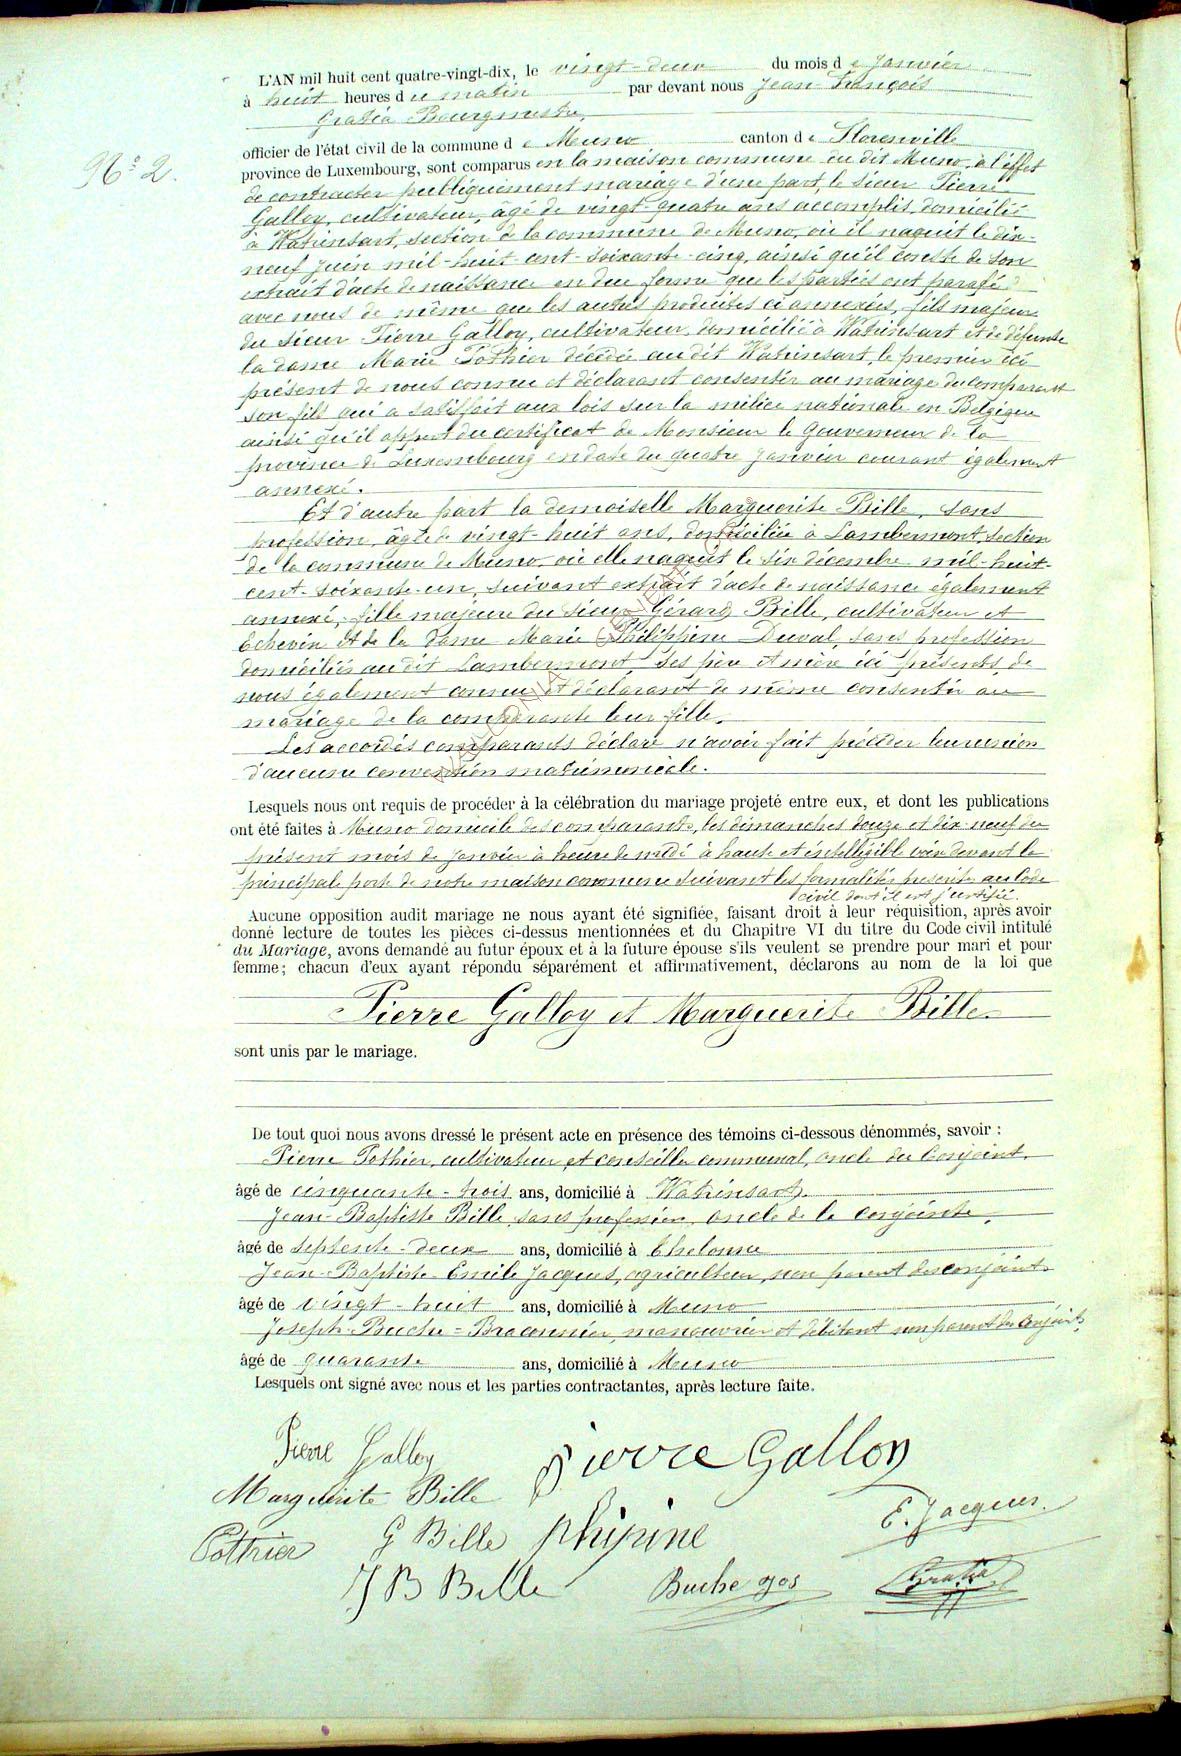 L'AN mil huit cent quatre-vingt-dix, le vingt-deux du mois de Janvier
à huit heures du matin par devant nous Jean François
Gratia Bourgmestre,
officier de l'état civil de la commune de Muno canton de Florenville
N° 2.
province de Luxembourg, sont comparus en la maison commune du dit Muno, à l'effet
de contracter publiquement mariage d'une part, le sieur Pierre
Galloy, cultivateur, âgé de vingt-quatre ans accomplis, domicilié
à Watrinsart, section de la commune de Muno, où il naquit le dix-
neuf Juin mil-huit-cent-soixante-cinq, ainsi qu'il conste de son
extrait d'acte de naissance en due forme que les parties ont parafé
avec nous de même que les autres produites ci annexées, fils majeur
du sieur Pierre Galloy, cultivateur, domicilié à Watrinsart et de défunte
la dame Marie Pothier décédée au dit Watrinsart, le premier ici
présent de nous connu et déclarant consentir au mariage du comparant
son fils qui a satisfait aux lois sur la milice nationale en Belgique
ainsi qu'il appert du certificat de Monsieur le Gouverneur de la
province de Luxembourg en date du quatre Janvier courant également
annexé.
Et d'autre part la demoiselle Marguerite Bille, sans
profession, âgée de vingt-huit ans, domiciliée à Lambermont, section
de la commune de Muno où elle naquit le six décembre mil-huit-
cent-soixante-un, suivant extrait d'acte de naissance également
annexé, fille majeure du sieur Gérard Bille, cultivateur et
Echevin et de la dame Marie Philippine Duval, sans profession
domiciliés au dit Lambermont, ses père et mère ici présents, de
nous également connu et déclarant de même consentir au
mariage de la comparante leur fille.
Les accordés comparants déclaré n'avoir fait précéder leur union
d'aucune convention matrimoniale.
Lesquels nous ont requis de procéder à la célébration du mariage projeté entre eux, et dont les publications
ont été faites à Muno domicile des comparants, les dimanches douze et dix-neuf du
présent mois de Janvier à heure de midi à haute et intelligible voix devant la
principale porte de notre maison commune suivant les formalités prescrites au Code
civil dont il est justifié.
Aucune opposition audit mariage ne nous ayant été signifiée, faisant droit à leur réquisition, après avoir
donné lecture de toutes les pièces ci-dessus mentionnées et du Chapitre VI du titre du Code civil intitulé
du Mariage, avons demandé au futur époux et à la future épouse s'ils veulent se prendre pour mari et pour
femme; chacun d'eux ayant répondu séparément et affirmativement, déclarons au nom de la loi que
Pierre Galloy et Marguerite Bille
sont unis par le mariage.
De tout quoi nous avons dressé le présent acte en présence des témoins ci-dessous dénommés, savoir :
Pierre Pothier, cultivateur et conseiller communal, oncle du Conjoint,
âgé de cinquante-trois ans, domicilié à Watrinsart.
Jean-Baptiste Bille, sans profession, oncle de la conjointe,
âgé de septente-deux ans, domicilié à
Jean-Baptiste Emile Jacques, agriculteur, non parent des conjoints
âgé de vingt-huit ans, domicilié à Muno
Joseph Buche=Braconnier, manoeuvrier et débitant non parent des conjoints,
âgé de quarante ans, domicilié à Muno
Lesquels ont signé avec nous et les parties contractantes, après lecture faite.
Pierre Galloy Pierre Galloy
Marguerite Bille E. Jacques.
Pothier G Bille phipine
J B Bille Buche jos Gratia